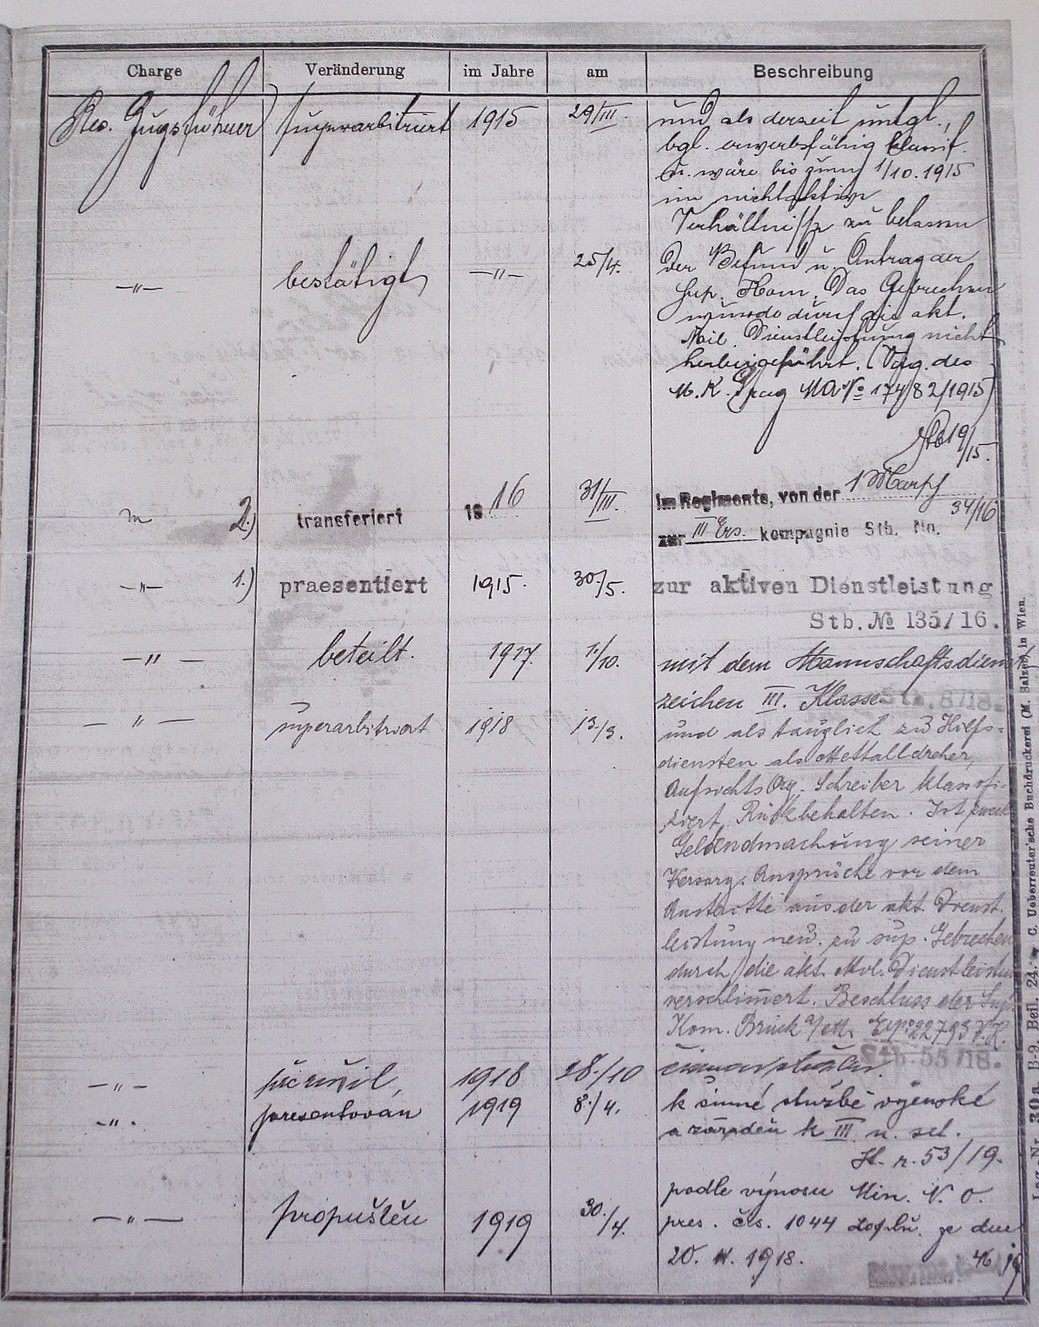 Charge Veränderung im Jahre am Beschreibung
Res. Zugsführer superarbitriert 1915 29/III. und als derzeit untgl.,
bgl. erwerbsfähig klassif.
u. wäre bis zum 1/10.1915
im nichtaktiven
Verhältnisse zu belassen
—"— bestätigt —"— 25/4. Der Befund u. Antrag der
Sup. Kom. Das Gebrechen
wurde durch die akt.
Mil. Dienstleistung nicht
herbeigeführt. (Vdg. des
M.K. Prag MA № 174/82/1915)
19/15.
2.) transferiert 1916 31/III. im Regimente, von der 1 Marsch
zur III Ers. kompagnie Stb. No. 34/16
—"— 1.) praesentiert 1915. 30./5. zur aktiven Dienstleistung
Stb. № 135/16.
—"— beteilt. 1917. 1./10. mit dem Mannschaftsdienst
zeichen III. Klasse Stb. 8/18.
—"— superarbitriert 1918 13./3. und als tauglich zu Hilfs-
diensten als Mettalldreher,
Aufsichts Org. Schreiber klassifi-
ziert. Rückbehalten. Ist zwecks
Geltendmachung seiner
Versorg. Ansprüche vor dem
Austritte aus der akt. Dienst
leistung neu. zu sup. Gebrechen
durch die akt. Mil. Dienstleistung
verschlimert. Beschluss der Sup.
Kom. Bruck a/Leth. 22793
Stb. 55/18.
—"— přerušil 1918 28./10 činnou službu.
—"— presentován 1919 8./4. k činné službě vojenské
a zařaděn k III n. set.
Hl. n. 53/19.
—"— propuštěn 1919 30./4. podle výnosu Min. N. O.
pres. čís. 1044 doplň. ze dne
20. 1918. 46/19
Lag.-Nr. 30a B-9, Beil. 24. — C. Ueberreuter'sche Buchdruckerei (M. Salzer) in Wien.